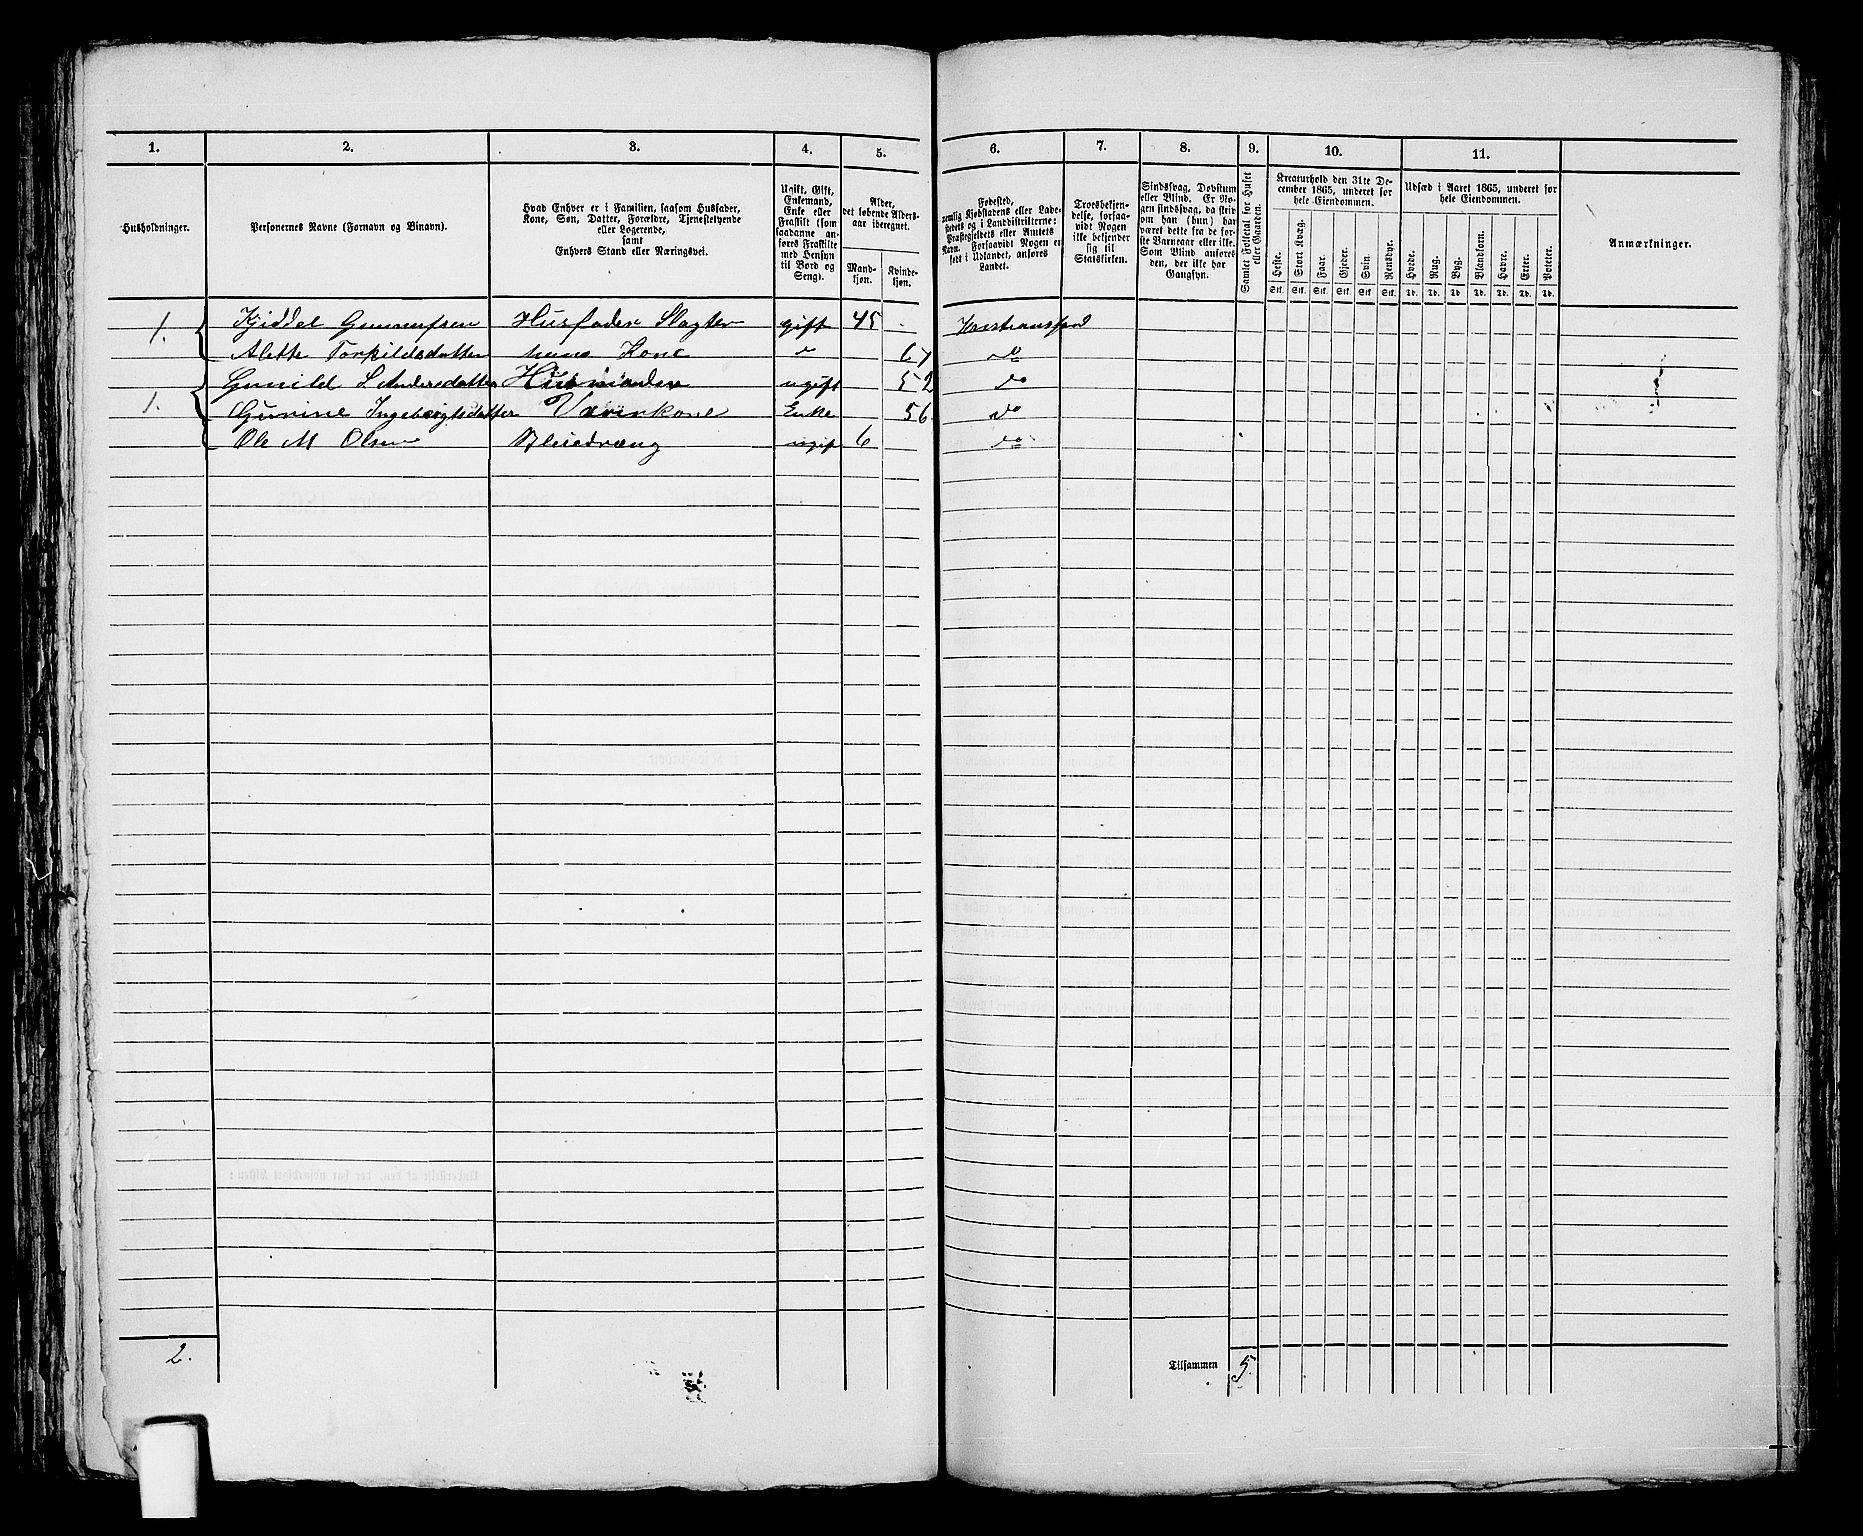 1. 2. 3. 4. 5. 6. 7. 8. 9. 10. 11.
Husholdninger.
Personernes Navne (Fornavn og Binavn).
Hvad Enhver er i Familien, saasom Husfader,
Kone, Søn, Datter, Forældre, Tjenestetyende
eller Logerende,
samt
Enhvers Stand eller Næringsvei.
Ugift, Gift,
Enkemand,
Enke eller
Fraskilt (som
saadanne an-
føres Fraskilte
med Hensyn
til Bord og
Seng).
Alder,
det løbende Alders-
aar iberegnet.
Mand-
kjøn.
Kvinde-
kjøn.
Fødested,
nemlig Kjøbstadens eller Lade-
stedets og i Landdistrikterne:
Præstegjeldets eller Amtets
Navn. Forsaavidt Nogen er
født i Udlandet, anføres
Landet.
Troesbekjen-
delse, forsaa-
vidt Nogen
ikke bekjender
sig til
Statskirken.
Sindssvag, Døvstum
eller Blind. Er No-
gen sindssvag, da skriv
om han (hun) har
været dette fra de før-
ste Barneaar eller ikke.
Som Blind anføres
den, der ikke har
Gangsyn.
Samlet Folketal for Huset
eller Gaarden.
Kreaturhold den 31te De-
cember 1865, underet for
hele Eiendommen.
Heste. Stort Kvæg. Faar. Gjeder. Svin. Rensdyr.
Stk. Stk. Stk. Stk. Stk. Stk.
Udsæd i Aaret 1865, underet for
hele Eiendommen.
Hvede. Rug. Byg. Blandkorn. Havre. Erter. Poteter.
Td. Td. Td. Td. Td. Td. Td.
Anmærkninger.
1. Kjiddel Gunnufsen Husfader Slagter gift 45 Kristianssand
Alette Torkildsdatter hans Kone do
Gunild L Andersdatter ugift 52 do
1. Gurine Ingebørgtsdatter Enke 56 do
Ole M Olsen Pleiedræng ugift 6 do
2.
Tilsammen 5.